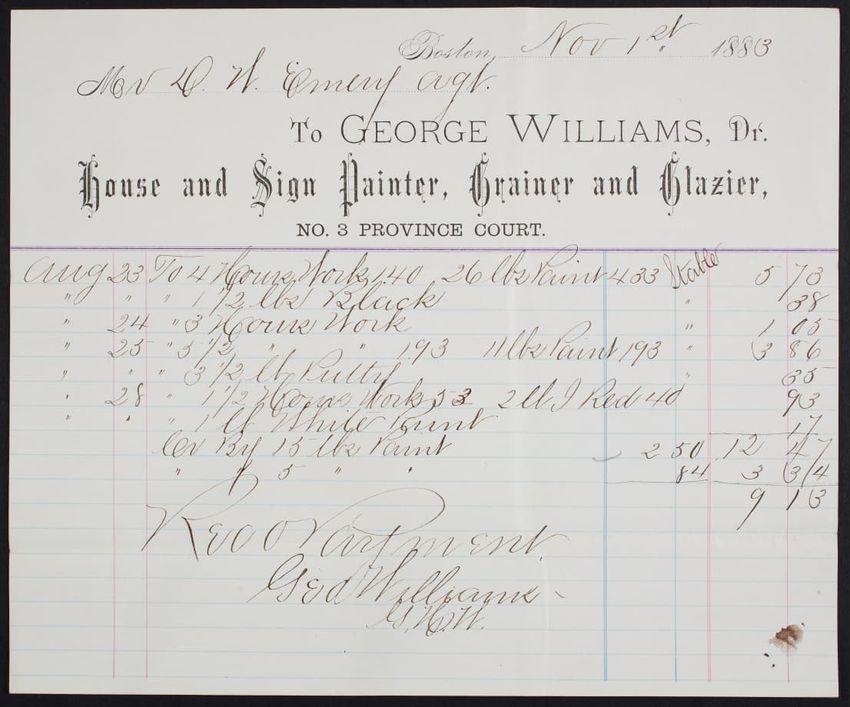 Boston, Nov 1st 1883
Mr D. W. Emery agt.
To GEORGE WILLIAMS, Dr.
House and Sign Painter, Grainer and Glazier,
NO. 3 PROVINCE COURT.
Aug 23 To 4 Hours Work 140 26 lbs Paint 433 Stable 5 73
" " " 1 1/2 lbs Black " 38
" 24 " 3 Hours Work " 1 05
" 25 " 5 1/2 " " 193 11 lbs Paint 193 " 3 86
" " " 3 1/2 lb Putty " 35
" 28 " 1 1/2 Hours Work 53 2 lb I Red 40 93
" " " 1 lb White Paint 17
Cr By 15 lbs Paint 2 50 12 47
" " 5 " " 84 3 34
9 13
Rec'd Payment
Geo Williams
G.H.W.